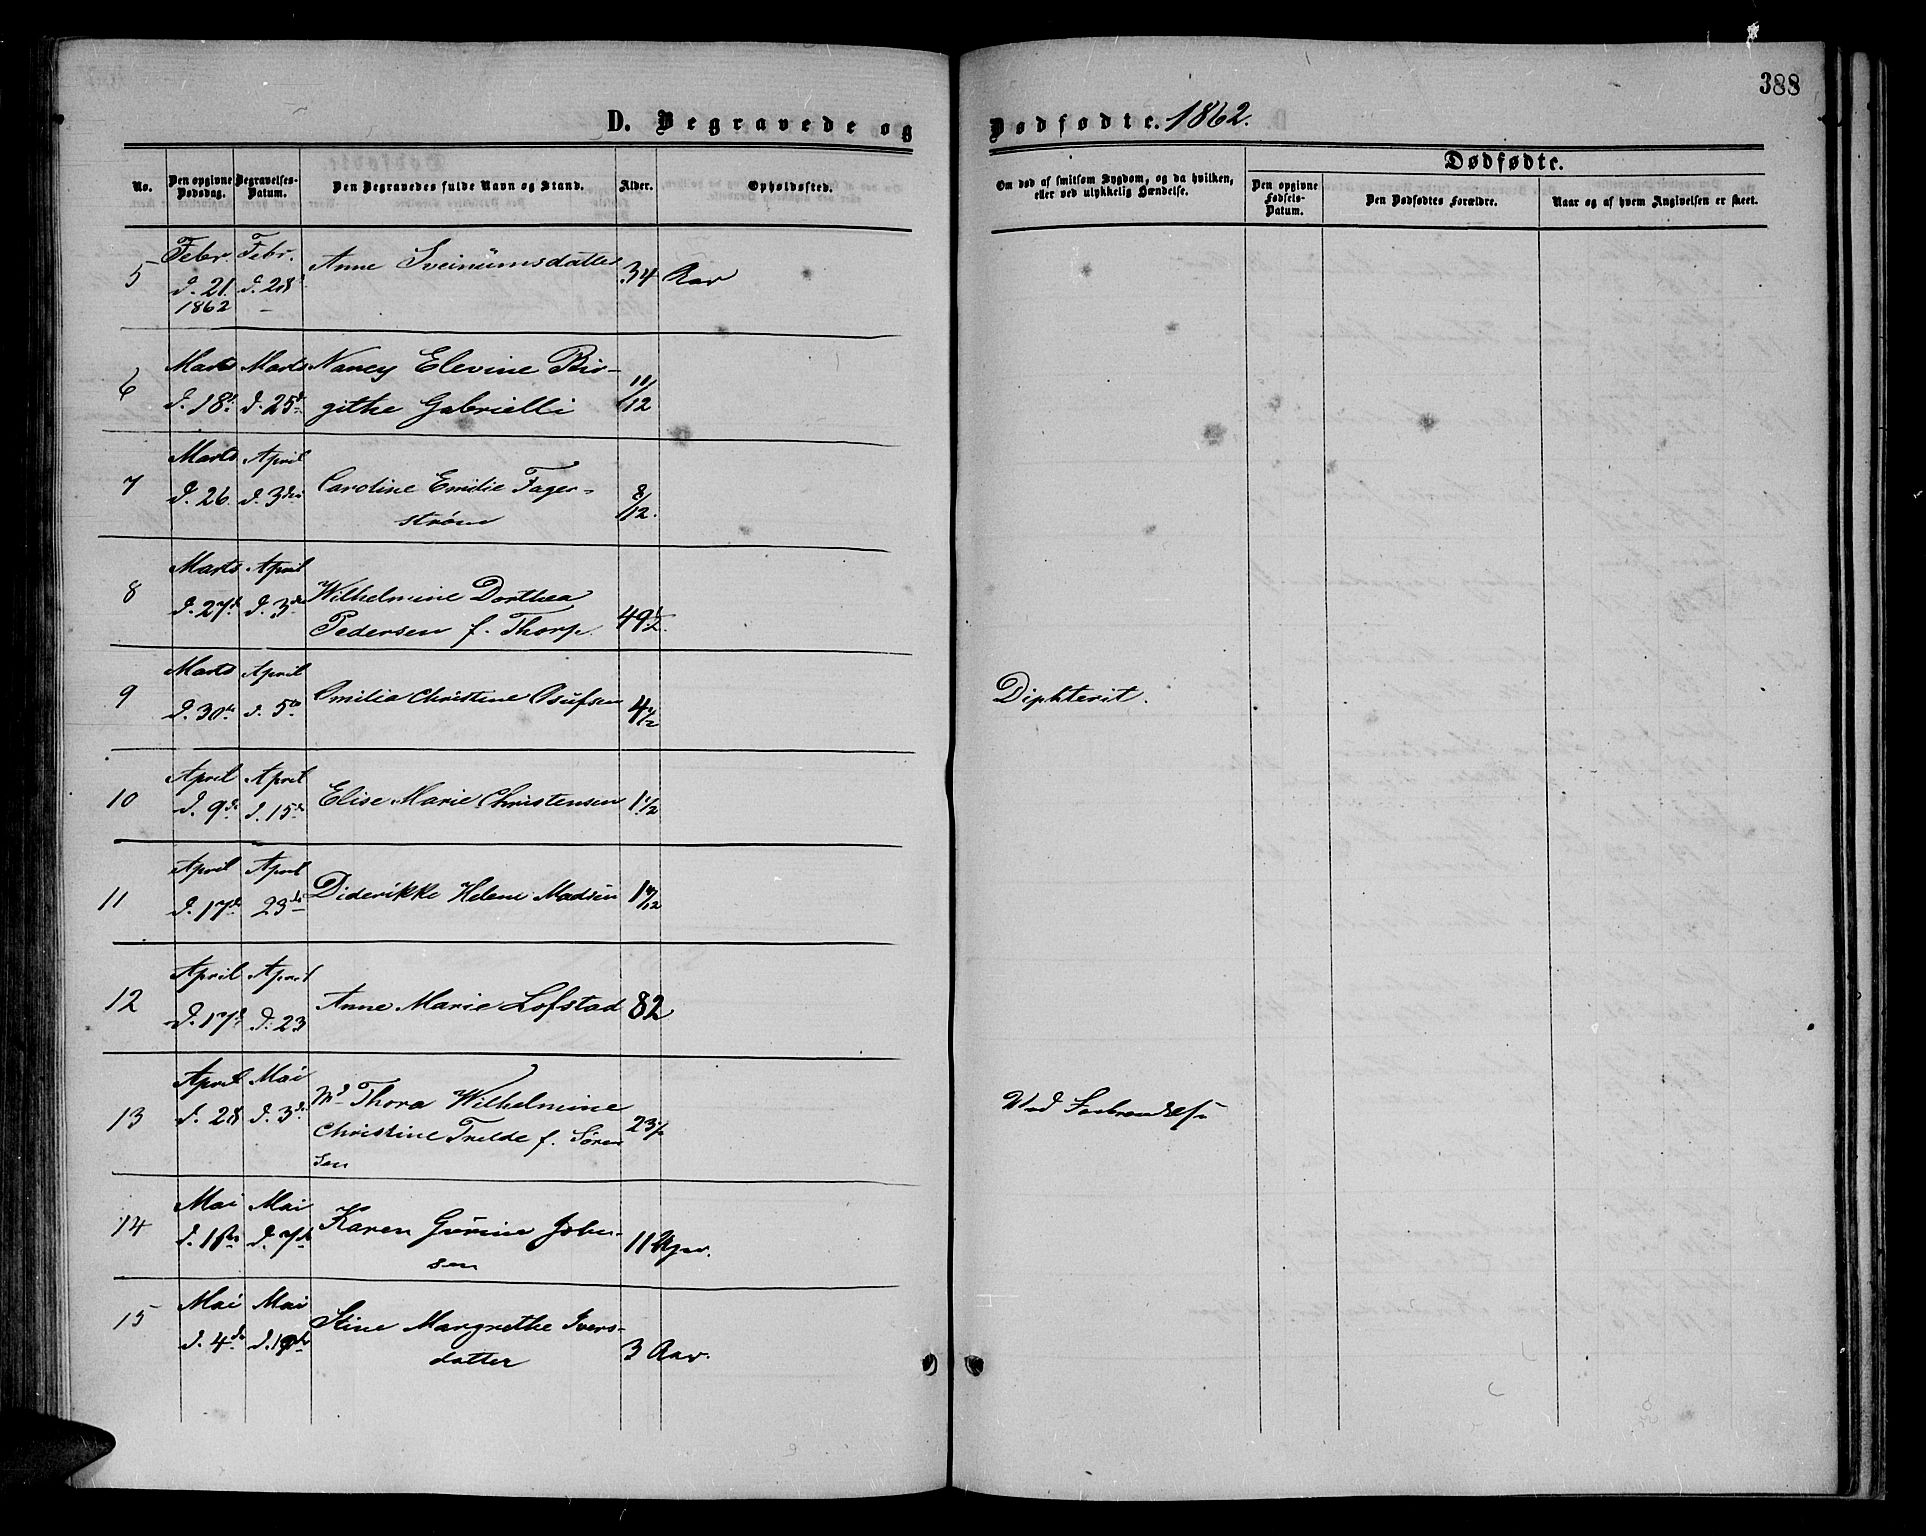 388
D. Begravede og Dødfødte. 1862.
No.
Den opgivne Dødsdag.
Begravelses-Datum.
Den Begravedes fulde Navn og Stand.
Alder.
Opholdssted.
Om død af smitsom Sygdom, og da hvilken, eller ved ulykkelig Hændelse.
Dødfødte.
Den opgivne Fødsels-Datum.
Den Dødfødtes Forældre.
Naar og af hvem Angivelsen er skeet.
5 Febr. d. 21. 1862 Febr. d. 28 Anne Sveinumsdatter 34 Aar
6 Marts d. 18d Marts d. 25d Nancy Elevine Bir-
githe Gabrielli 11/12
7 Marts d. 26 April d. 3die Caroline Emilie Fager-
strøm 8/12.
8 Marts d. 27d April d. 3d Wilhelmine Dorthea
Pedersen f. Thorp. 49 1/2.
9 Marts d. 30te April d. 5te Emilia Christine 4 1/2 Diphterit.
10 April d. 9d April d. 15d Elise Marie Christensen 1 1/2
11 April d. 17d April 23d Diderikke Helene Madsen
12 April d. 17d April d. 23 Anne Marie Lofstad 82
13 April d. 28 Mai d. 3d Md Thora Wilhelmine
Christine Trelde f. Søren
sen 23 1/2 Ved
14 Mai d. 1ste Mai d. 7d Karen Gurine Johen-
sen 11 Uger.
15 Mai d. 4d Mai d. Stine Margrethe Ivers-
datter 3 Aar.